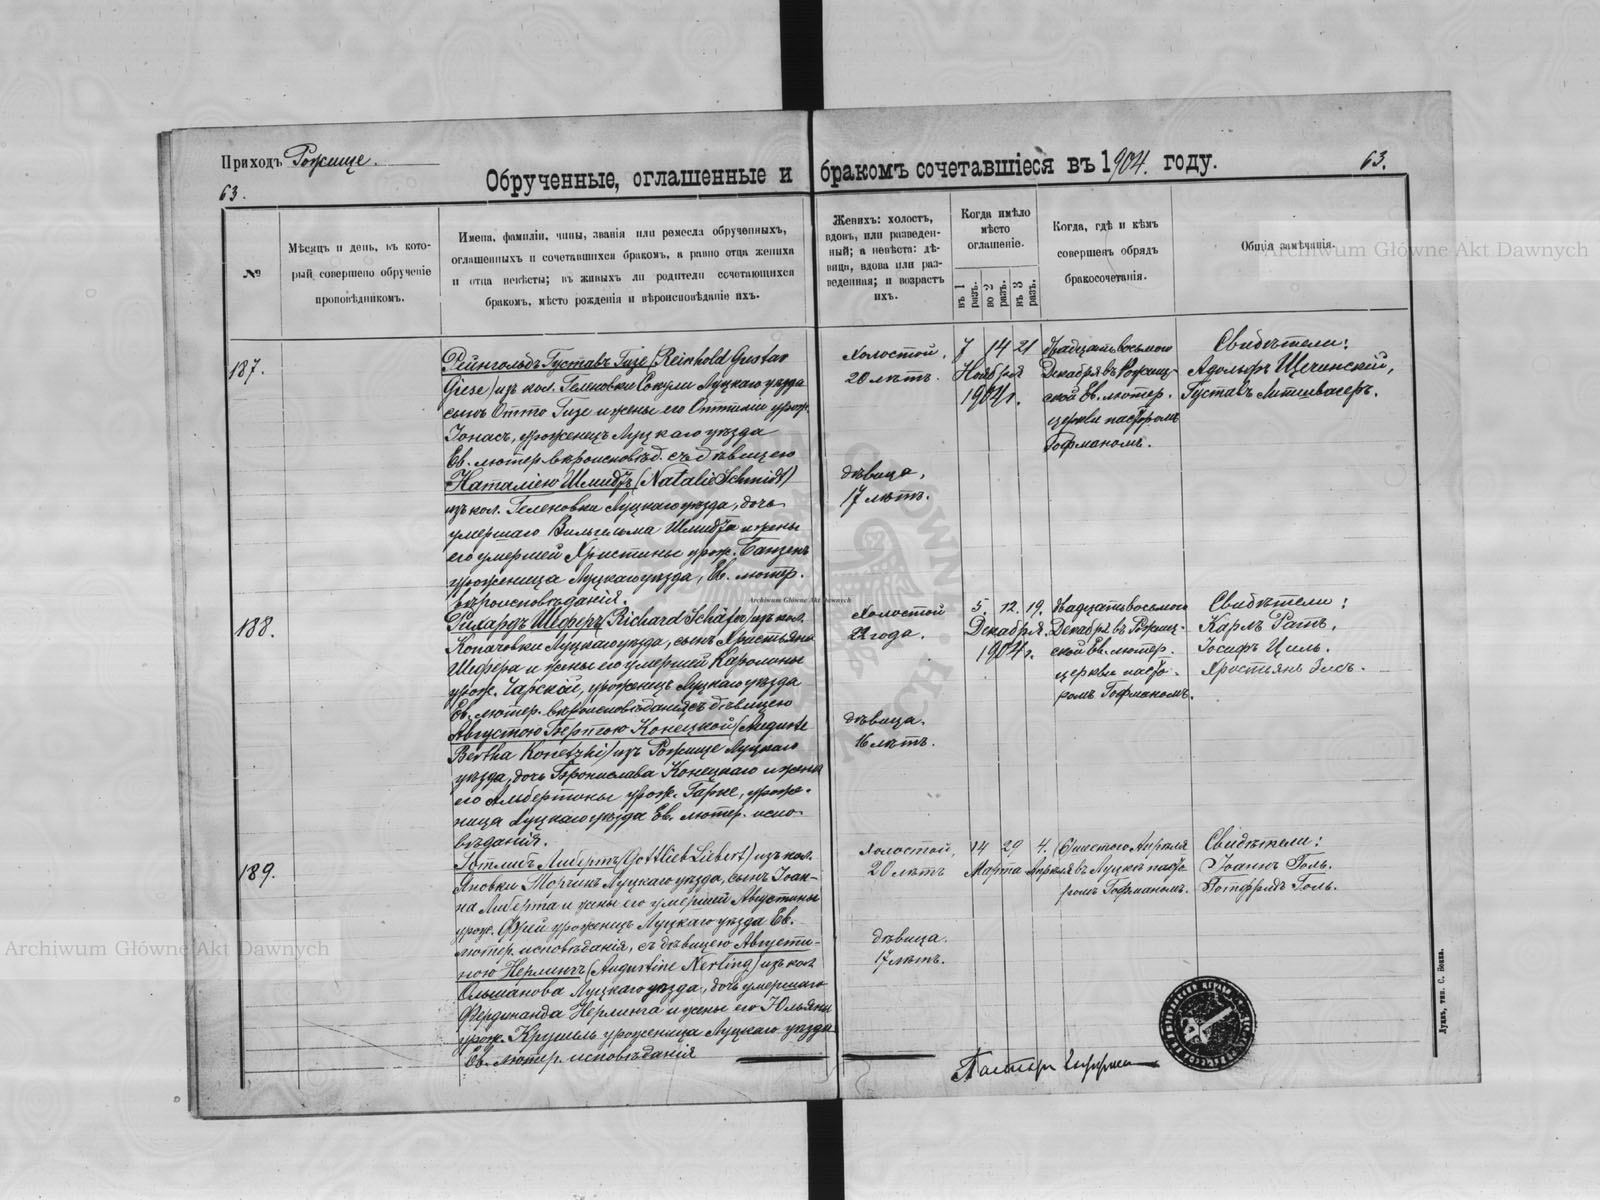 Приходъ Рожище.
63.
Обрученные, оглашенные и бракомъ сочетавшіеся въ 1904. году.
63.
№
Мѣсяцъ и день, въ кото-
рый совершено обрученіе
проповѣдникомъ.
Имена, фамиліи, чины, званія или ремесла обрученныхъ,
оглашенныхъ и сочетавшихся бракомъ, а равно отца жениха
и отца невѣсты; въ живыхъ ли родители сочетающихся
бракомъ, мѣсто рожденія и вѣроисповѣданіе ихъ.
Женихъ: холостъ,
вдовъ, или разведен-
ный; а невѣста: дѣ-
вица, вдова или раз-
веденная; и возрастъ
ихъ.
Когда имѣло
мѣсто
оглашеніе.
въ 1 разъ.
во 2 разъ.
въ 3 разъ.
Когда, гдѣ и кѣмъ
совершенъ обрядъ
бракосочетанія.
Общія замѣчанія.
187.
Рейнгольдъ Густавъ Гизе (Reinhold Gustav
Giese) изъ кол. Геленовки Рокули Луцкаго уѣзда
сынъ Отто Гизе и жены его Оттиліи урож.
Іонасъ, уроженецъ Луцкаго уѣзда
Ев. лютер. вѣроисповѣд. съ дѣвицею
Наталіею Шмидтъ (Natalie Schmidt)
изъ кол. Геленовки Луцкаго уѣзда, дочь
умершаго Вильгельма Шмидта и жены
его умершей Христины урож. Банзенъ
уроженица Луцкаго уѣзда, Ев. лютер.
вѣроисповѣданія.
Холостой,
20 лѣтъ.
дѣвица,
17 лѣтъ.
7 14 21
Ноября
1904 г.
двадцать восьмого
Декабря въ Рожищ-
ской Ев. лютер.
церкви пасторомъ
Гофманомъ.
Свидѣтели:
Адольфъ Щечинскій,
Густавъ Литвасеръ.
188.
Рихардъ Шеферъ (Richard Schäfer) изъ кол.
Копачовки Луцкаго уѣзда, сынъ Христьяна
Шефера и жены его умершей Каролины
урож. Чарской, уроженецъ Луцкаго уѣзда
Ев. лютер. вѣроисповѣданія съ дѣвицею
Августою Бертою Конецкой (Auguste
Bertha Konetzki) изъ Рожище Луцкаго
уѣзда, дочь Бронислава Конецкаго и жены
его Альбертины урож. Гарке, уроже-
ница Луцкаго уѣзда Ев. лютер. испо-
вѣданія.
Холостой
22 года.
дѣвица.
16 лѣтъ.
5. 12. 19.
Декабря.
1904 г.
двадцать восьмого
Декабря въ Рожищ-
ской Ев. лютер.
церкви пасто-
ромъ Гофманомъ.
Свидѣтели:
Карлъ Ратъ.
Іосифъ Циль.
Христьянъ Зисъ.
189.
Готлибъ Либертъ (Gottlieb Liebert) изъ кол.
Яповки Торчинъ Луцкаго уѣзда, сынъ Іоан-
на Либерта и жены его умершей Августины
урож. Фрей уроженецъ Луцкаго уѣзда Ев.
лютер. исповѣданія, съ дѣвицею Августи-
ною Нерлингъ (Augustine Nerling) изъ кол.
Ольшанова Луцкаго уѣзда, дочь умершаго
Фердинанда Нерлинга и жены его Юльяны
урож. Крушель уроженица Луцкаго уѣзда
Ев. лютер. исповѣданія
Холостой,
20 лѣтъ
дѣвица.
17 лѣтъ.
14 29 4.
Марта Апрѣля
6/шестого Апрѣля
въ Луцкѣ пасто-
ромъ Гофманомъ.
Свидѣтели:
Іоаннъ Голь.
Готфридъ Голь.
Пасторъ
Луцкъ, тип. С. Бокка.
Archiwum Główne Akt Dawnych
Archiwum Główne Akt Dawnych
Archiwum Główne Akt Dawnych